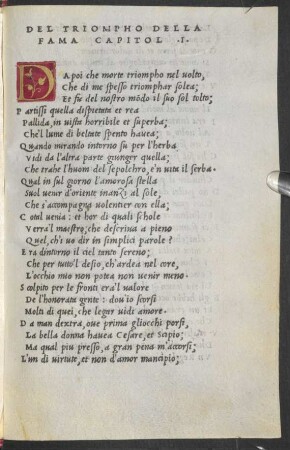 DEL TRIOMPHO DELLA
FAMA CAPITOL .I.
DA poi che morte triompho nel uolto,
Che di me spesso triomphar solea;
Et fu del nostro mōdo il suo sol tolto;
Partissi quella dispietata et rea
Pallida, in uista horribile et superba;
Che'l lume di beltate spento hauea;
Quando mirando intorno su per l'herba
Vidi da l'altra parte giunger quella;
Che trahe l'huom del sepolchro, e'n uita il serba.
Qual in sul giorno l'amorosa stella
Suol uenir d'oriente inanzi al sole;
Che s'accompagna uolentier con ella;
Cotal uenia: et hor di quali schole
Verrà'l maestro, che descriua a pieno
Quel, ch'i uo dir in simplici parole?
Era dintorno il ciel tanto sereno;
Che per tutto'l desio, ch'ardea nel core,
L'occhio mio non potea non uenir meno.
Scolpito per le fronti era'l ualore
De l'honorata gente: dou'io scorsi
Molti di quei, che legar uidi amore.
Da man dextra, oue prima gliocchi porsi,
La bella donna hauea Cesare, et Scipio;
Ma qual piu presso, a gran pena m'accorsi;
L'un di uirtute, et non d'amor mancipio;